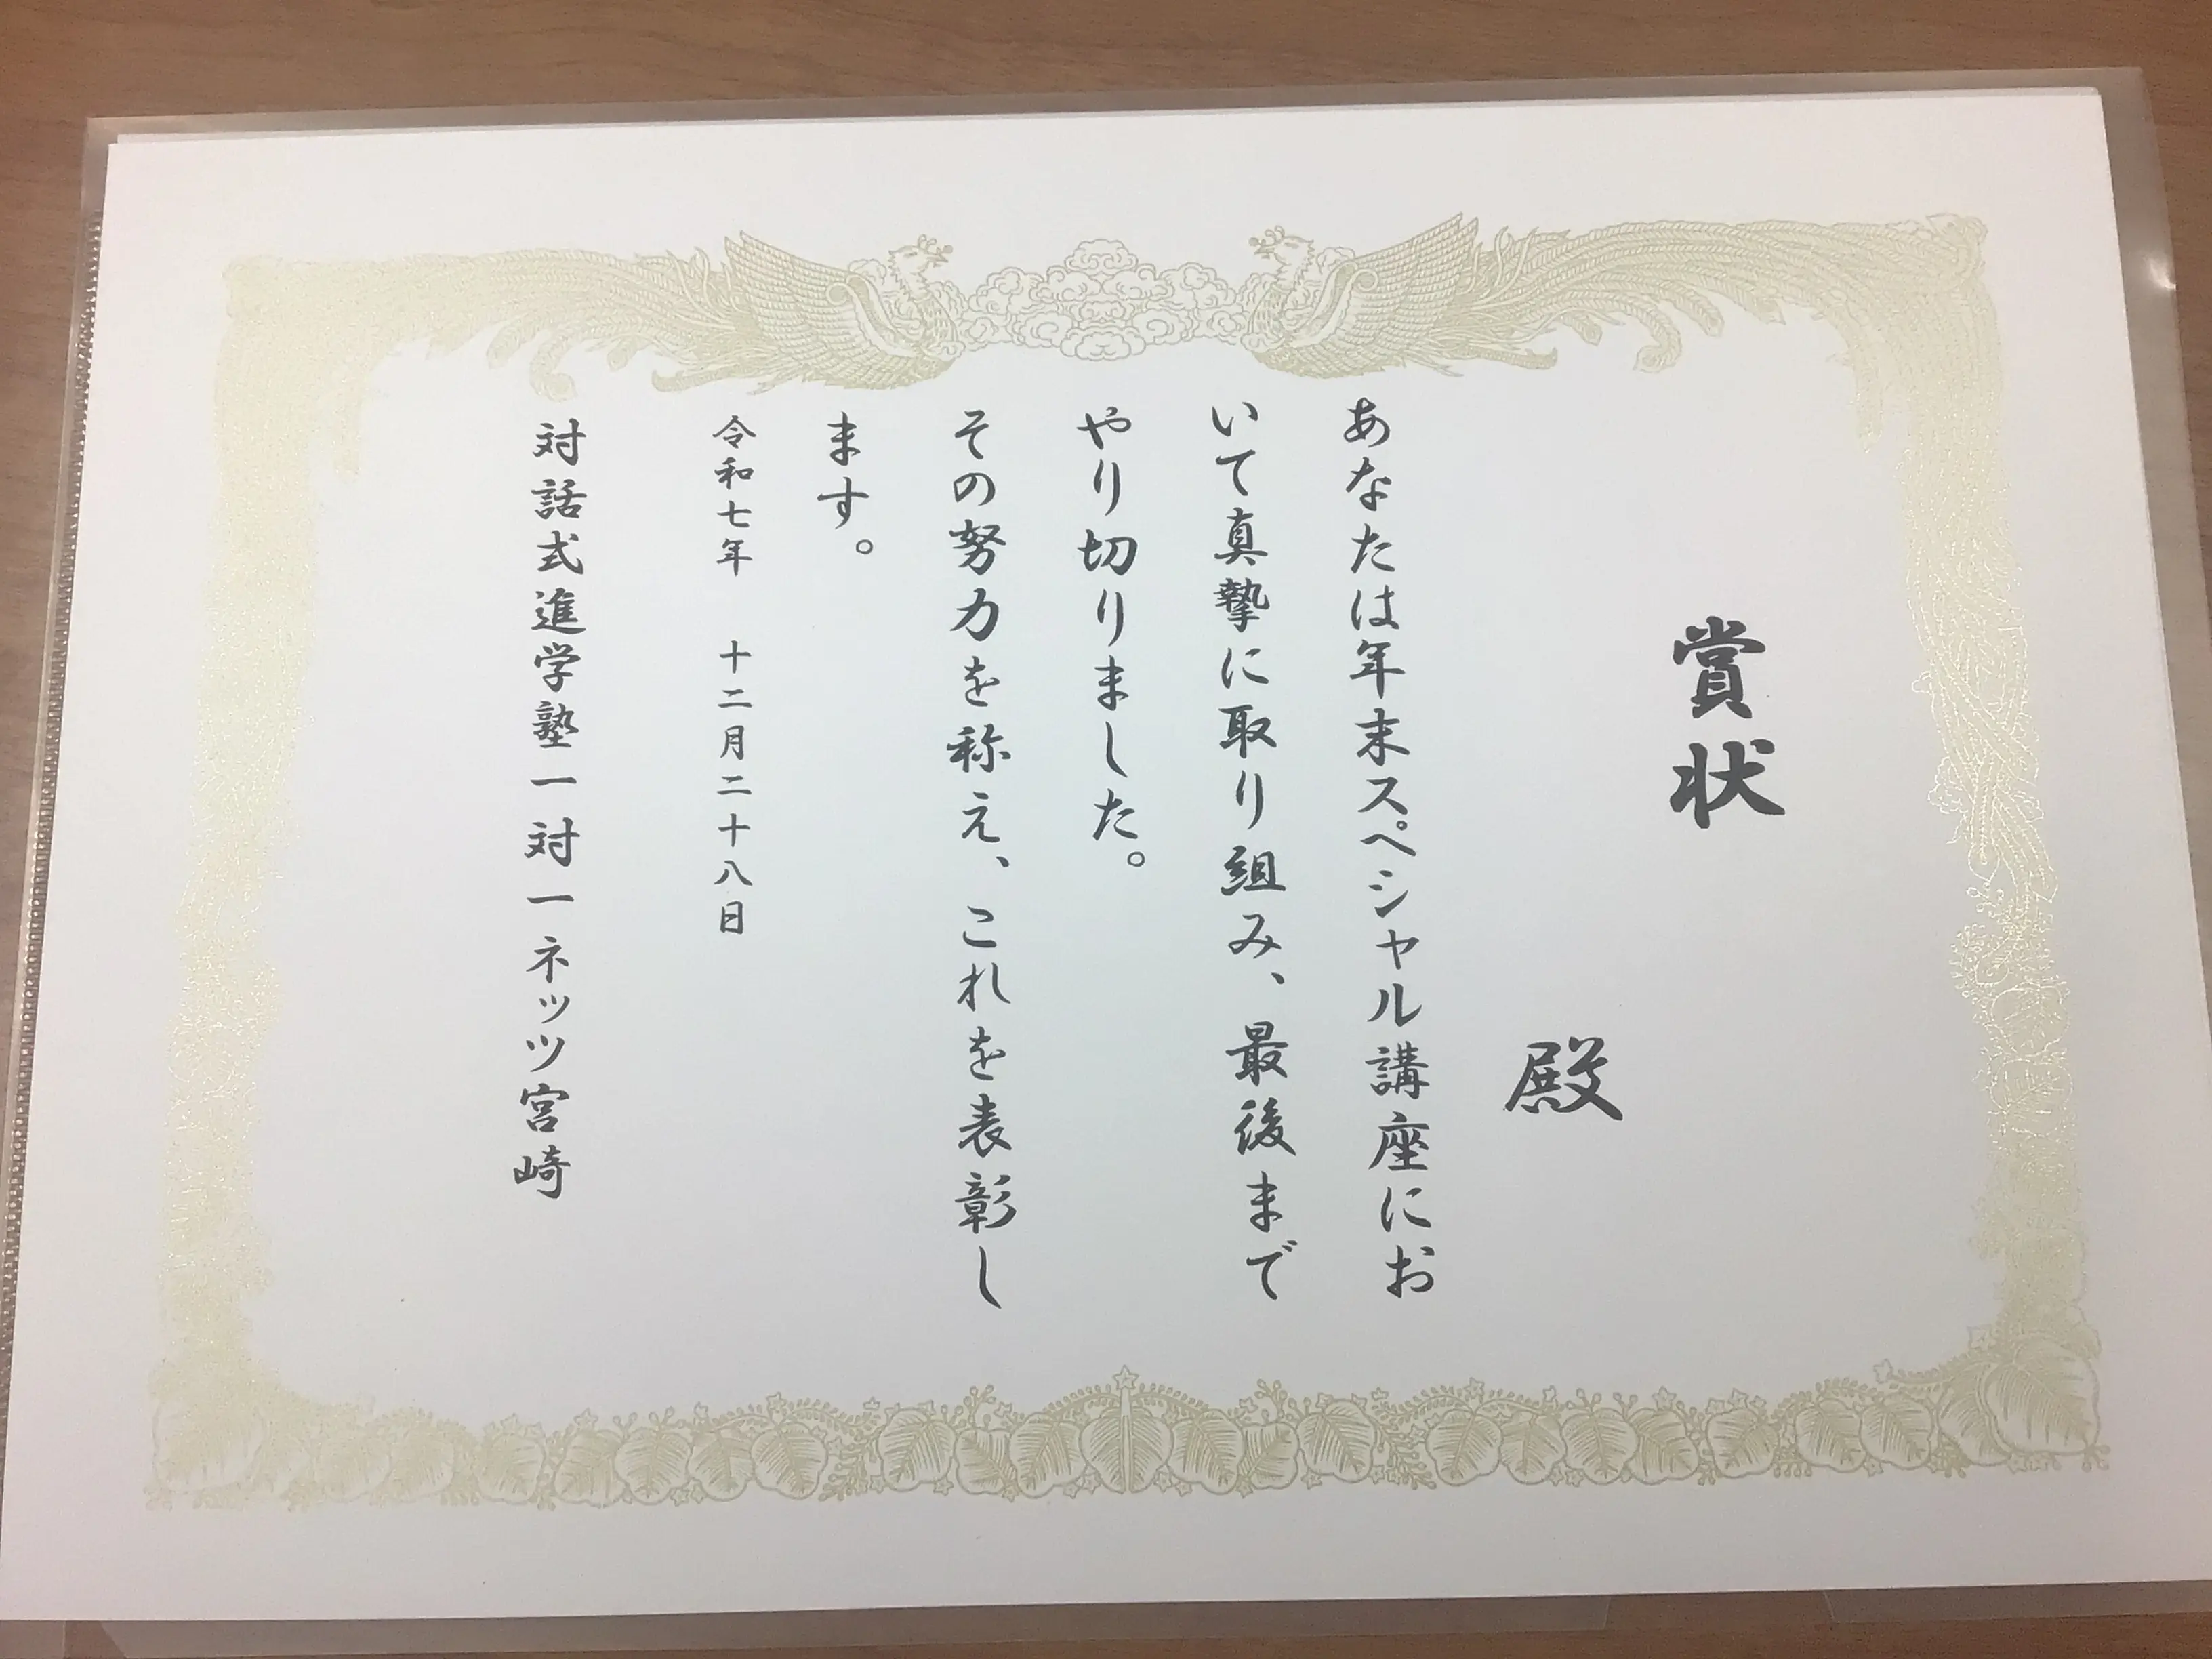 賞状
殿
あなたは年末スペシャル講座にお
いて真摯に取り組み、最後まで
やり切りました。
その努力を称え、これを表彰し
ます。
令和七年　十二月二十八日
対話式進学塾一対一ネッツ宮崎